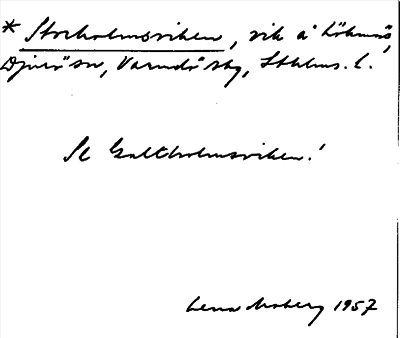 * Stockholmsviken, vik å Lökanäs,
Djurö sn, Värmdö skg, Sthlms. l.
Se Galtholmsviken!
Lena Moberg 1957